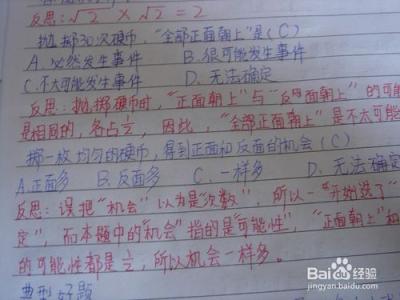 反思:√2 × √2 = 2
抛掷30次硬币,"全部正面朝上"是(C)
A.必然发生事件 B.很可能发生事件
C.不大可能发生事件 D.无法确定
反思:抛掷硬币时,"正面朝上"与"反面朝上"的可能
是相同的,各占1/2,因此,"全部正面朝上"是不太可能
掷一枚均匀的硬币,得到正面和反面的机会(C)
A.正面多 B.反面多 C.一样多 D.无法确定
反思:误把"机会"以为是"次数",所以一开始选了"
定",而本题中的"机会"指的是"可能性","正面朝上"和
的可能性都是1/2,所以机会一样多。
典型好题
Bai度经验
jingyan.baidu.com